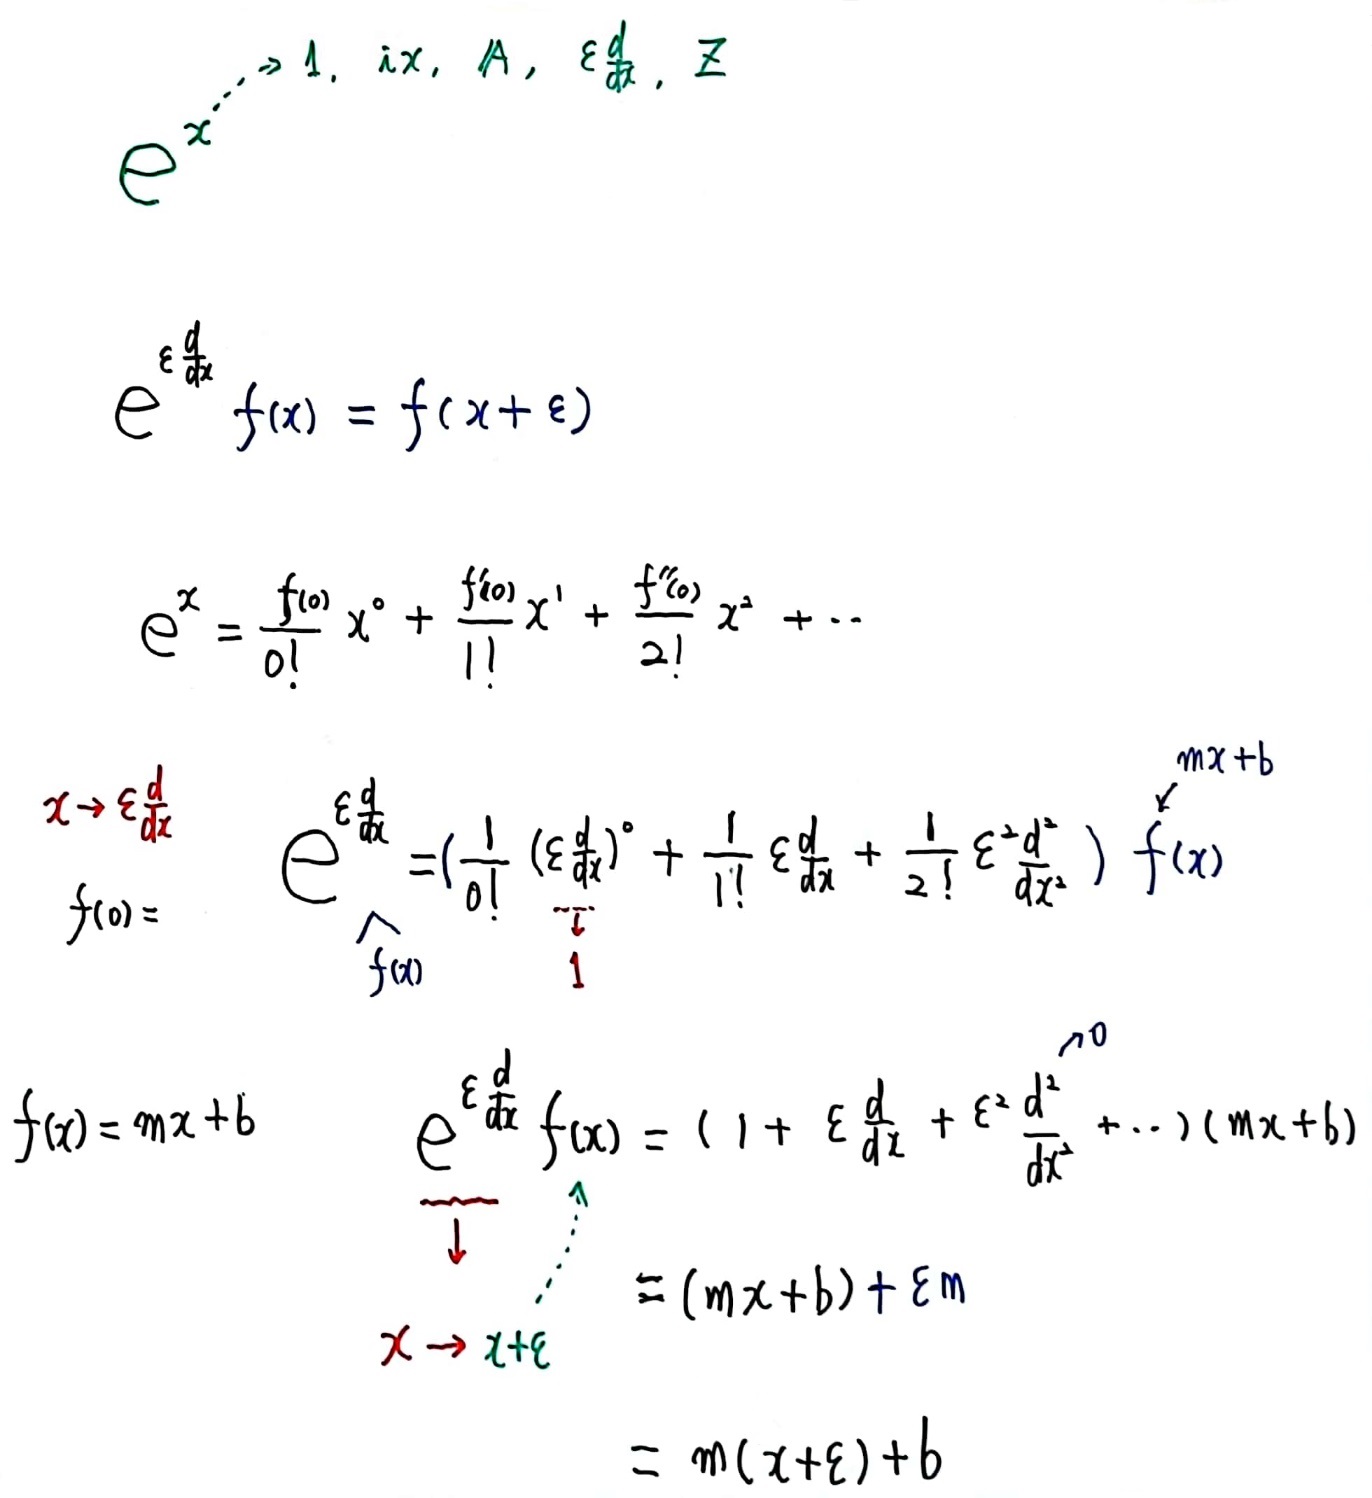 e^x ⇢ 1, ix, A, ε d/dx, Z
e^(ε d/dx) f(x) = f(x+ε)
e^x = f(0)/0! x⁰ + f'(0)/1! x¹ + f''(0)/2! x² + ··
mx+b
x → ε d/dx
e^(ε d/dx) = (1/0! (ε d/dx)⁰ + 1/1! ε d/dx + 1/2! ε² d²/dx²) f(x)
f(0) =
f(x)
1
0
f(x) = mx+b
e^(ε d/dx) f(x) = (1 + ε d/dx + ε² d²/dx² + ··)(mx+b)
= (mx+b) + εm
x → x+ε
= m(x+ε)+b